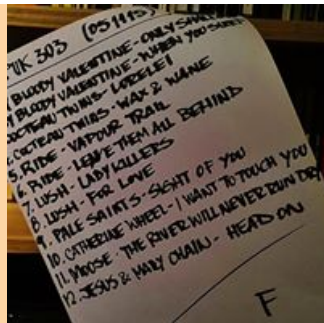 UK 303 (051113)
BLOODY VALENTINE - ONLY
BLOODY VALENTINE - WHEN YOU
COCTEAU TWINS - LORELEI
COCTEAU TWINS - WAX & WANE
5. RIDE - VAPOUR TRAIL
6. RIDE - LEAVE THEM ALL BEHIND
7. LUSH - LADYKILLERS
8. LUSH - FOR LOVE
9. PALE SAINTS - SIGHT OF YOU
10. CATHERINE WHEEL - I WANT TO TOUCH YOU
11. MOOSE - THE RIVER WILL NEVER RUN DRY
12. JESUS & MARY CHAIN - HEAD ON
F